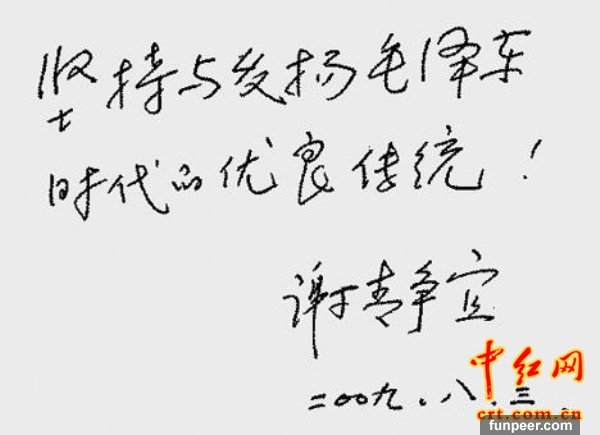 坚持与发扬毛泽东
时代的优良传统！
谢静宜
二〇〇九.八.三.
中红网
crt.com.cn
funpeer.com